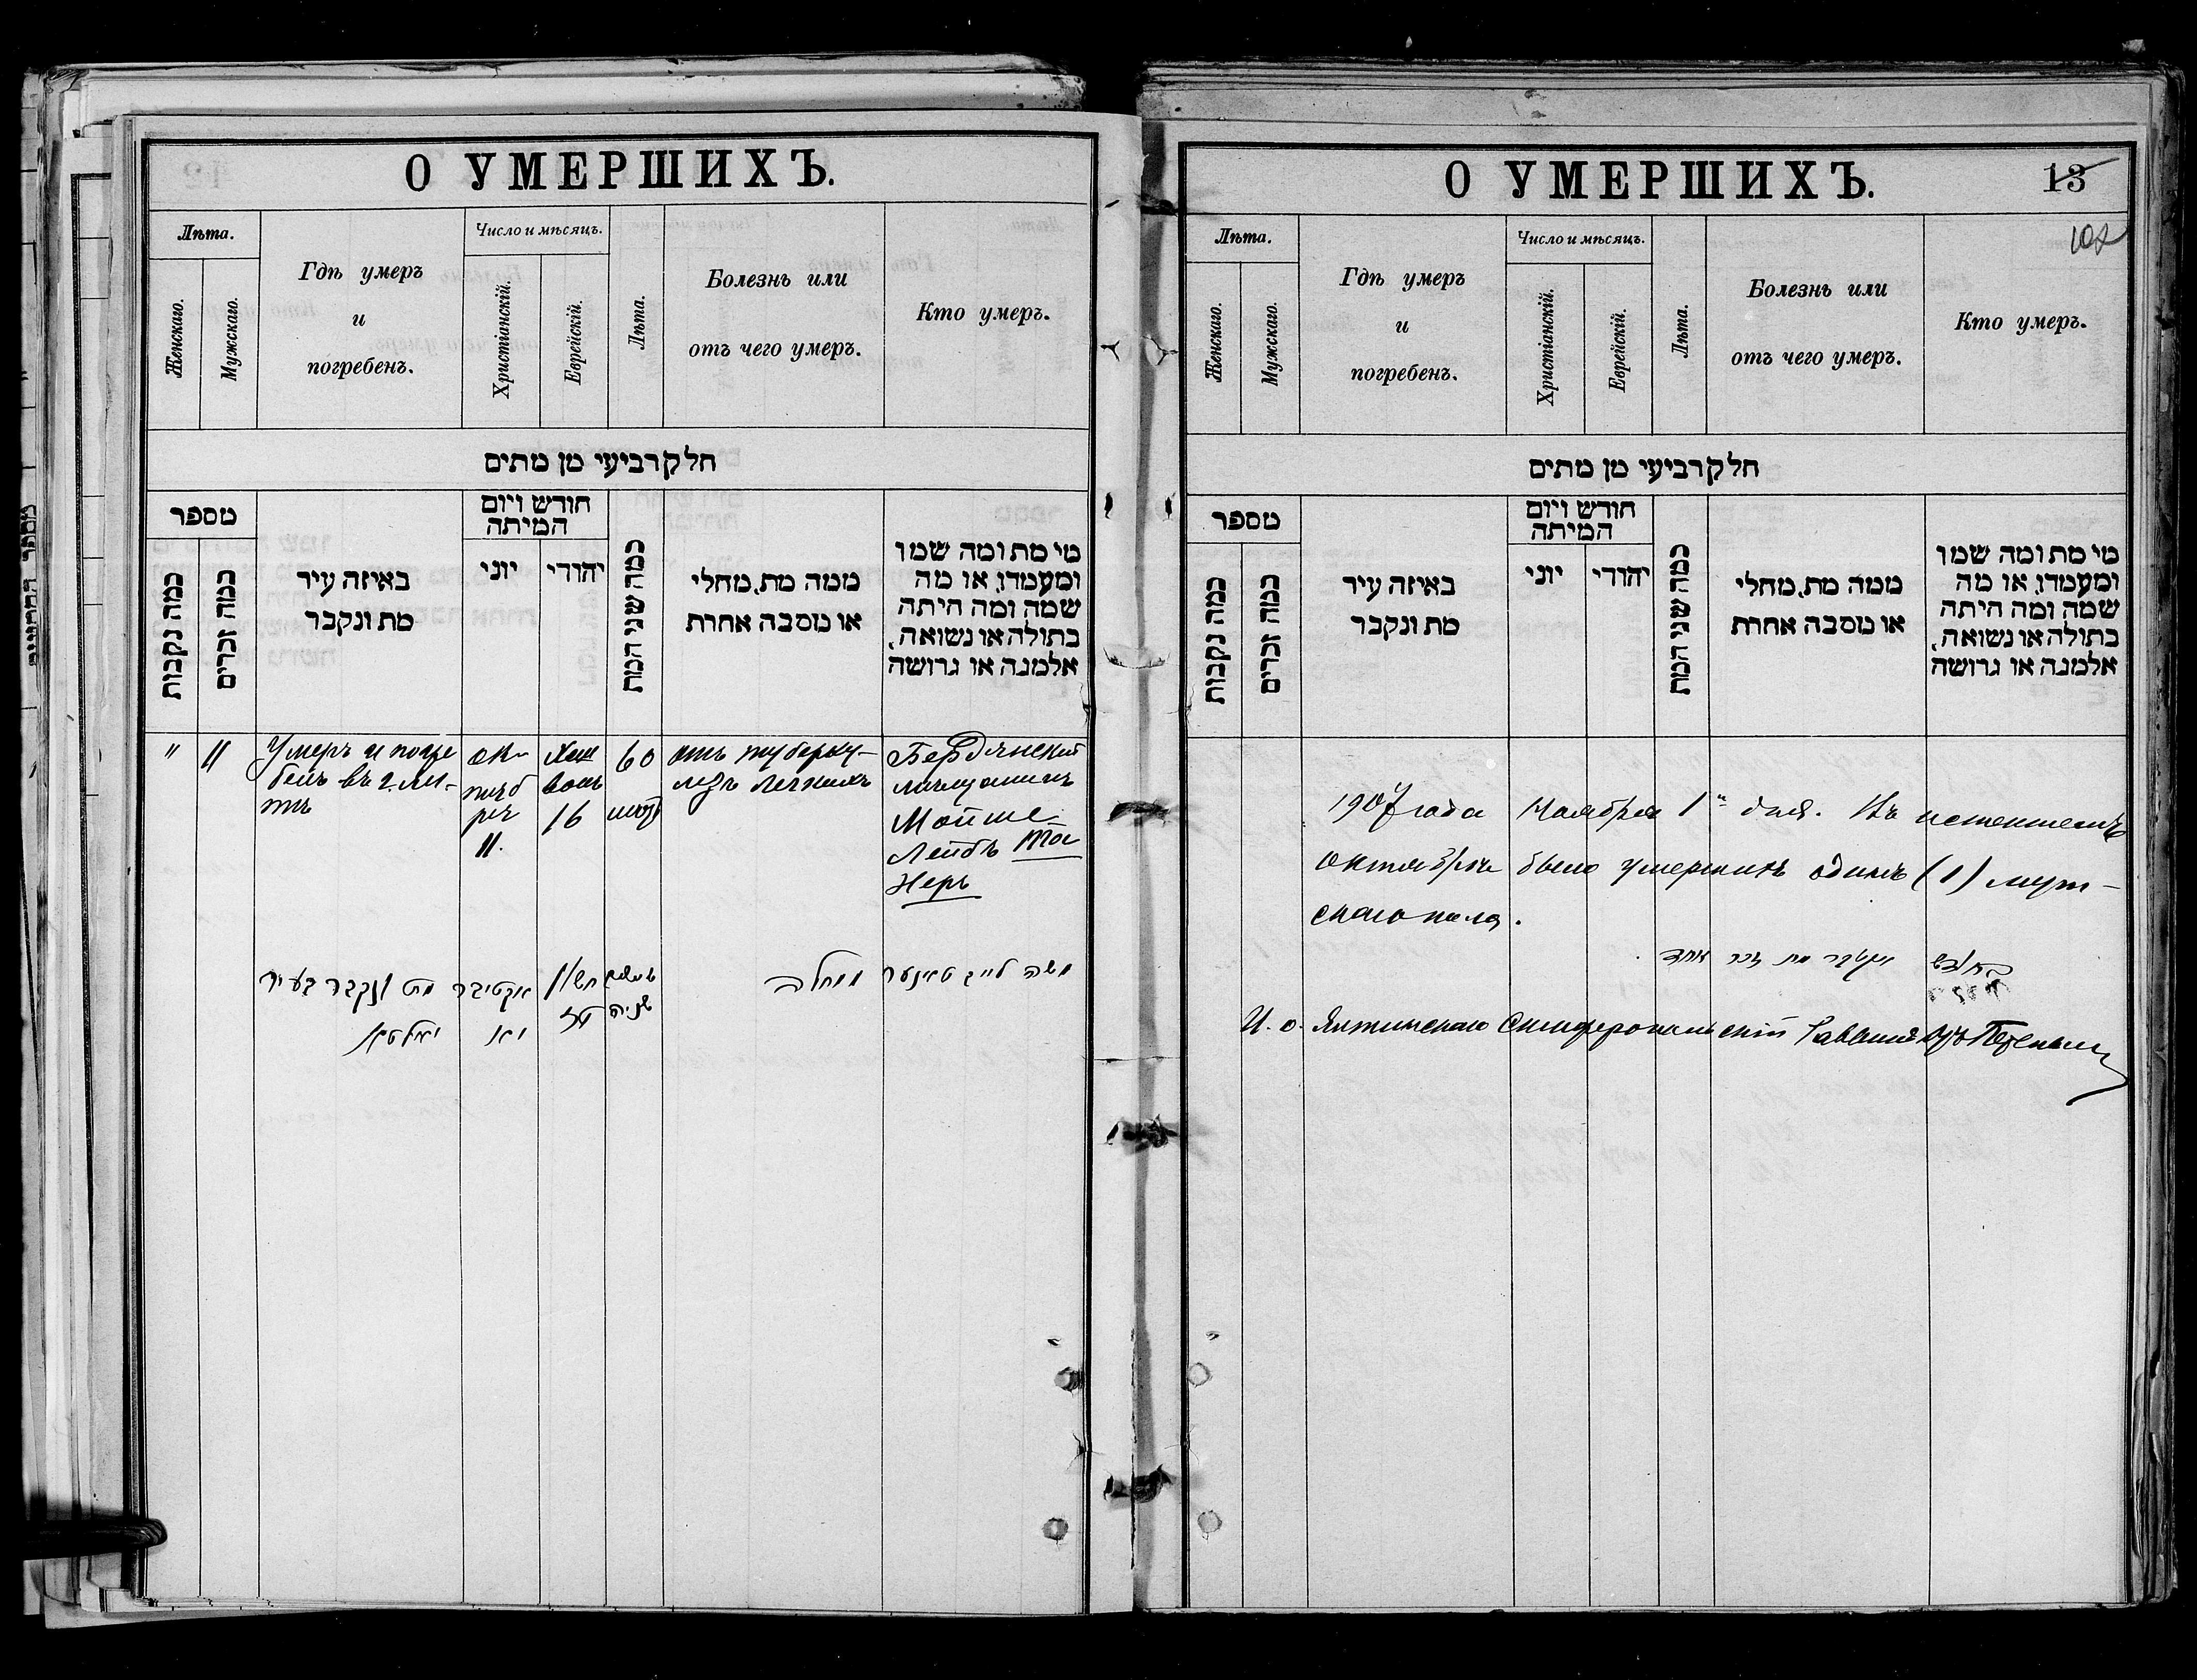 О УМЕРШИХЪ.
Лѣта.
Женскаго.
Мужскаго.
Гдѣ умеръ
и
погребенъ.
Число и мѣсяцъ.
Христіанскій.
Еврейскій.
Лѣта.
Болезнь или
отъ чего умеръ.
Кто умеръ.
חלק רביעי מן מתים
מספר
כמה נקבות
כמה זכרים
באיזה עיר
מת ונקבר
חודש ויום
המיתה
יוני
יהודי
כמה שני המת
ממה מת, מחלי
או מסבה אחרת
מי מת ומה שמו
ומעמדו, או מה
שמה ומה היתה
בתולה או נשואה,
אלמנה או גרושה
"
11
Умеръ и погре
бенъ въ г. Ял-
тѣ
ок-
тяб
рь
11.
Хеш
вонъ
16
60
отъ туберку-
леза легкихъ
Бердянскій
мѣщанинъ
Мойше
Лейбъ Та
Неръ
משה לייב טאנער
ממחלה
חשון
טז
שנה
אקטיבר
יא
מת ונקבר בעיר
יאלטא
О УМЕРШИХЪ.
13
102
Лѣта.
Женскаго.
Мужскаго.
Гдѣ умеръ
и
погребенъ.
Число и мѣсяцъ.
Христіанскій.
Еврейскій.
Лѣта.
Болезнь или
отъ чего умеръ.
Кто умеръ.
חלק רביעי מן מתים
מספר
כמה נקבות
כמה זכרים
באיזה עיר
מת ונקבר
חודש ויום
המיתה
יוני
יהודי
כמה שני המת
ממה מת, מחלי
או מסבה אחרת
מי מת ומה שמו
ומעמדו, או מה
שמה ומה היתה
בתולה או נשואה,
אלמנה או גרושה
1907 года Ноября 1 дня. Въ истекшемъ
октябрѣ было умершихъ одинъ (1) муж-
скаго пола.
בחודש מת זכר אחד
И. о. Ялтинскаго Симферопольскій Раввинъ